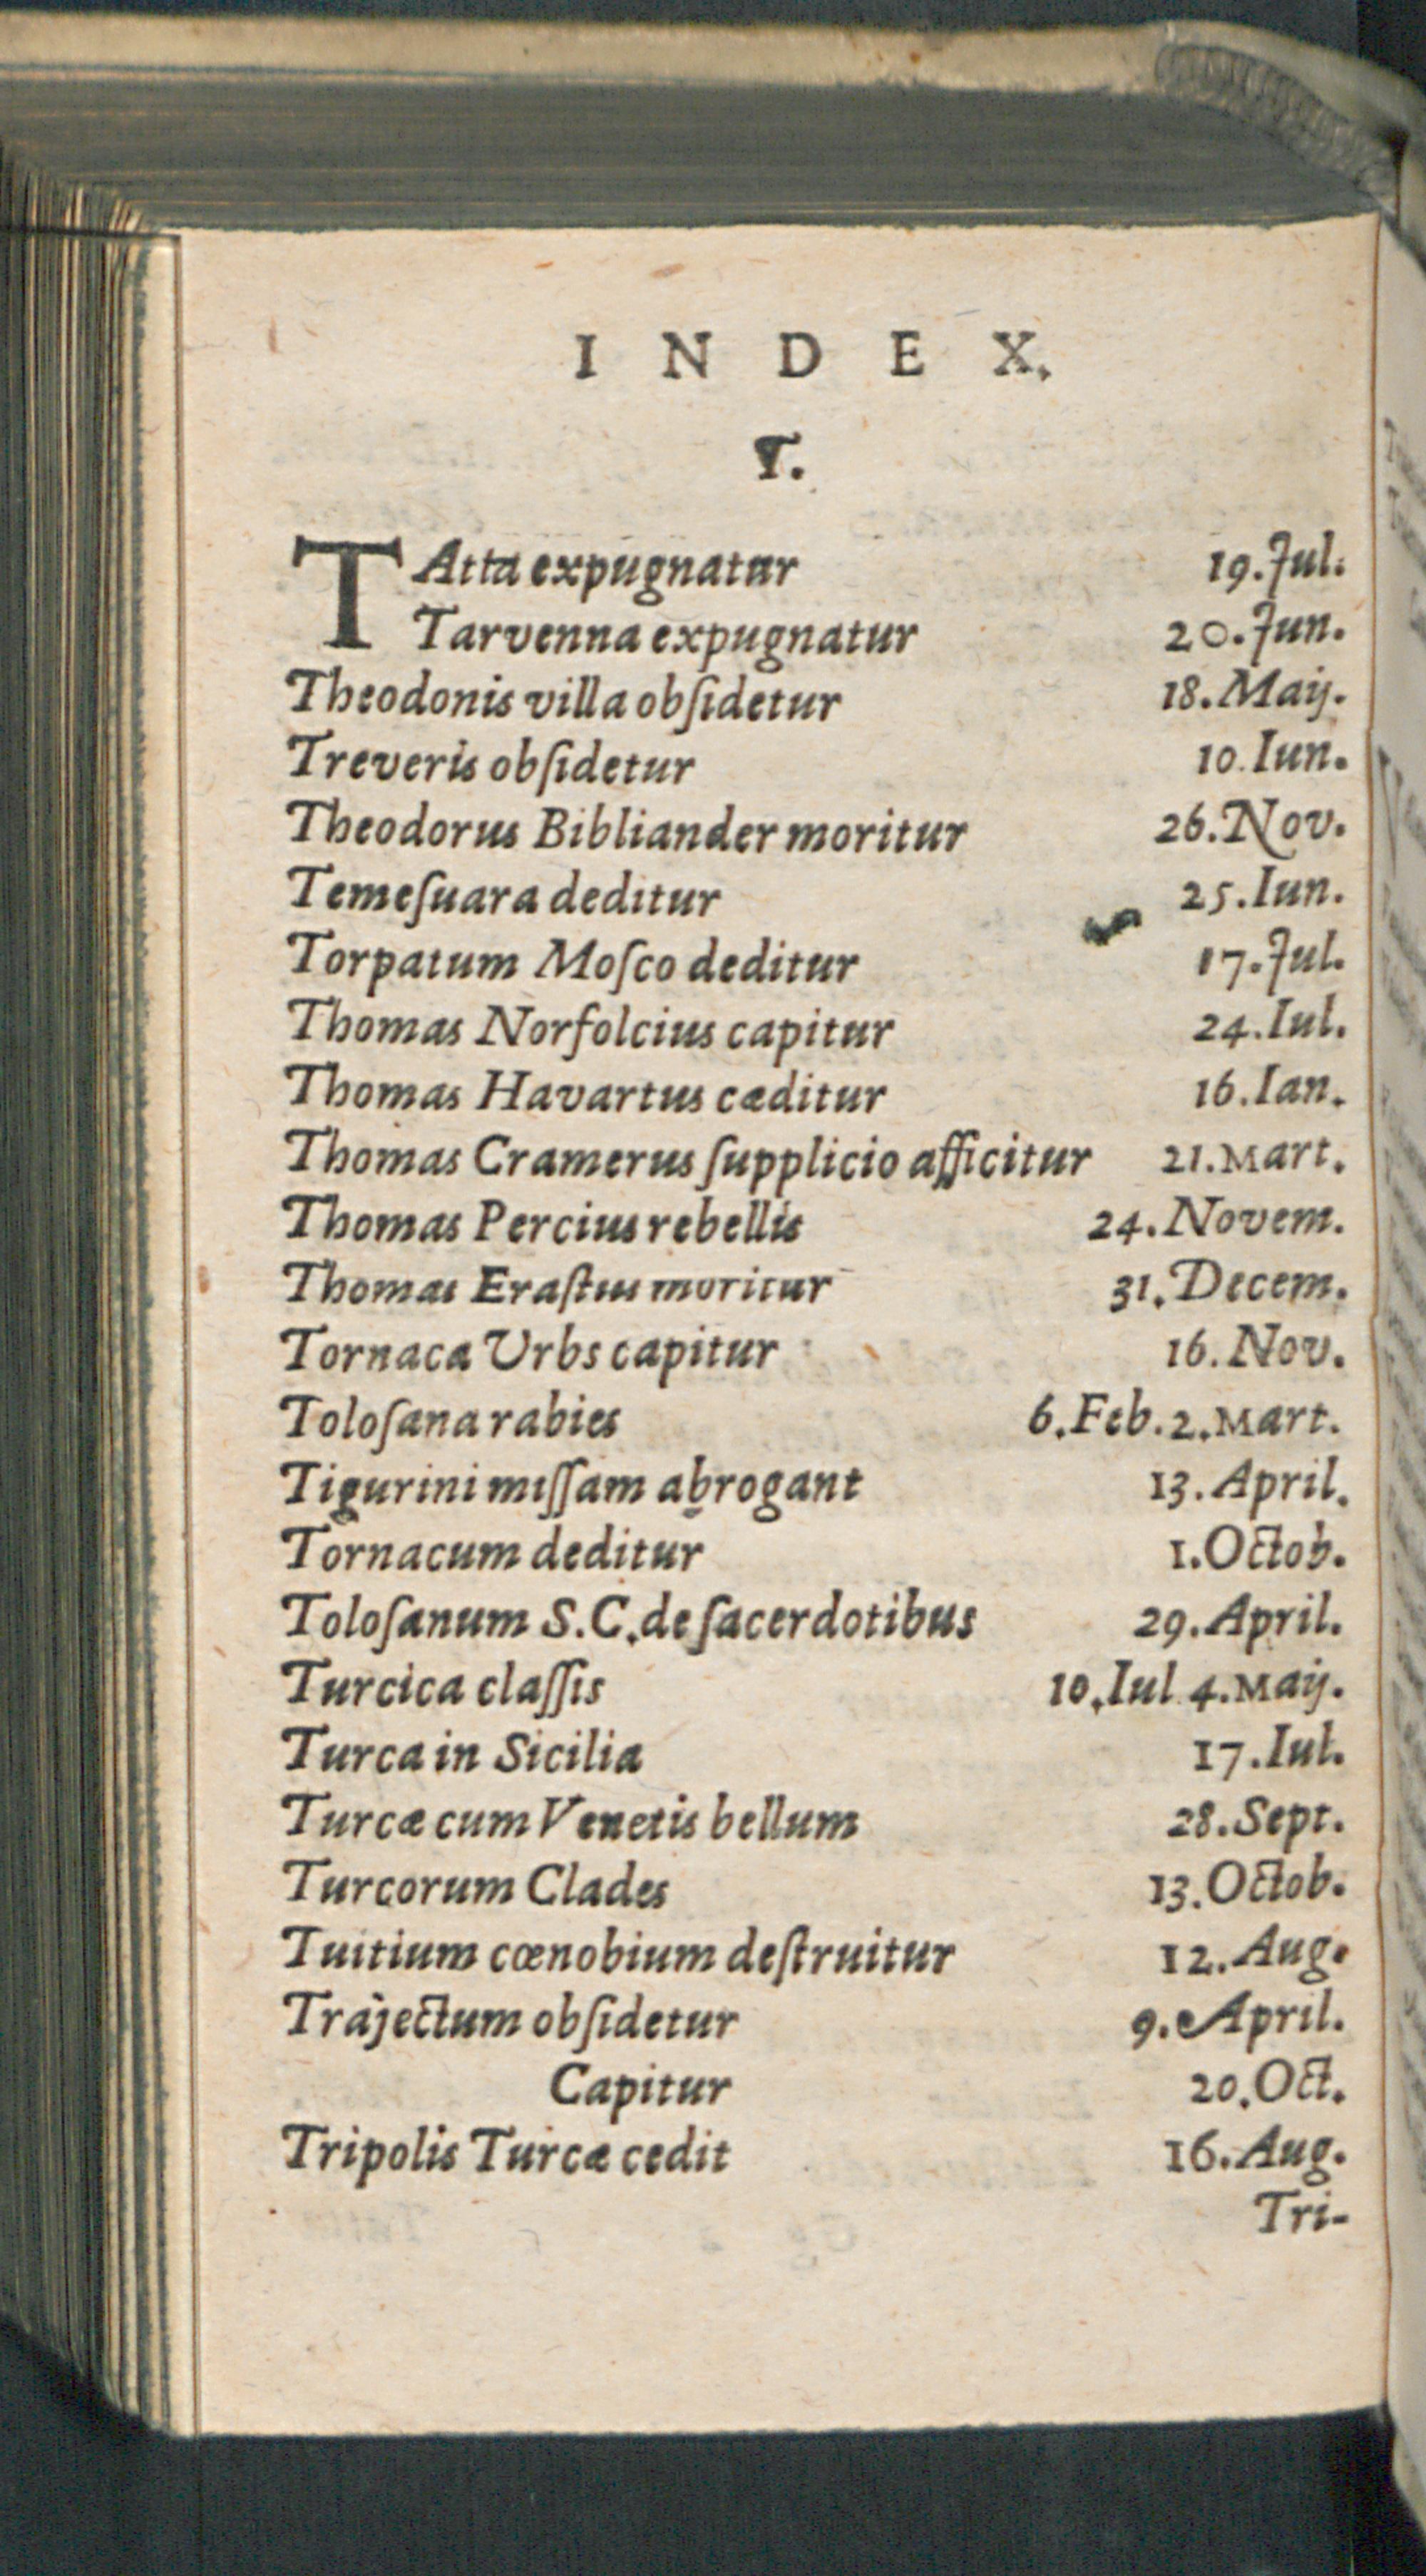 INDEX.
T.
TAtta expugnatur 19.Jul.
Tarvenna expugnatur 20.Jun.
Theodonis villa obſidetur 18.Maij.
Treveris obſidetur 10.Iun.
Theodorus Bibliander moritur 26.Nov.
Temeſuara deditur 25.Iun.
Torpatum Moſco deditur 17.Jul.
Thomas Norfolcius capitur 24.Iul.
Thomas Havartus cæditur 16.Ian.
Thomas Cramerus ſupplicio afficitur 21.Mart.
Thomas Percius rebellis 24.Novem.
Thomas Eraſtus moritur 31.Decem.
Tornaca Urbs capitur 16.Nov.
Toloſana rabies 6.Feb.2.Mart.
Tigurini miſſam abrogant 13.April.
Tornacum deditur 1.Octob.
Toloſanum S.C.de ſacerdotibus 29.April.
Turcica claſſis 10.Iul 4.Maij.
Turca in Sicilia 17.Iul.
Turcæ cum Venetis bellum 28.Sept.
Turcorum Clades 13.Octob.
Tuitium cœnobium deſtruitur 12.Aug.
Trajectum obſidetur 9.April.
Capitur 20.Oct.
Tripolis Turcæ cedit 16.Aug.
Tri-